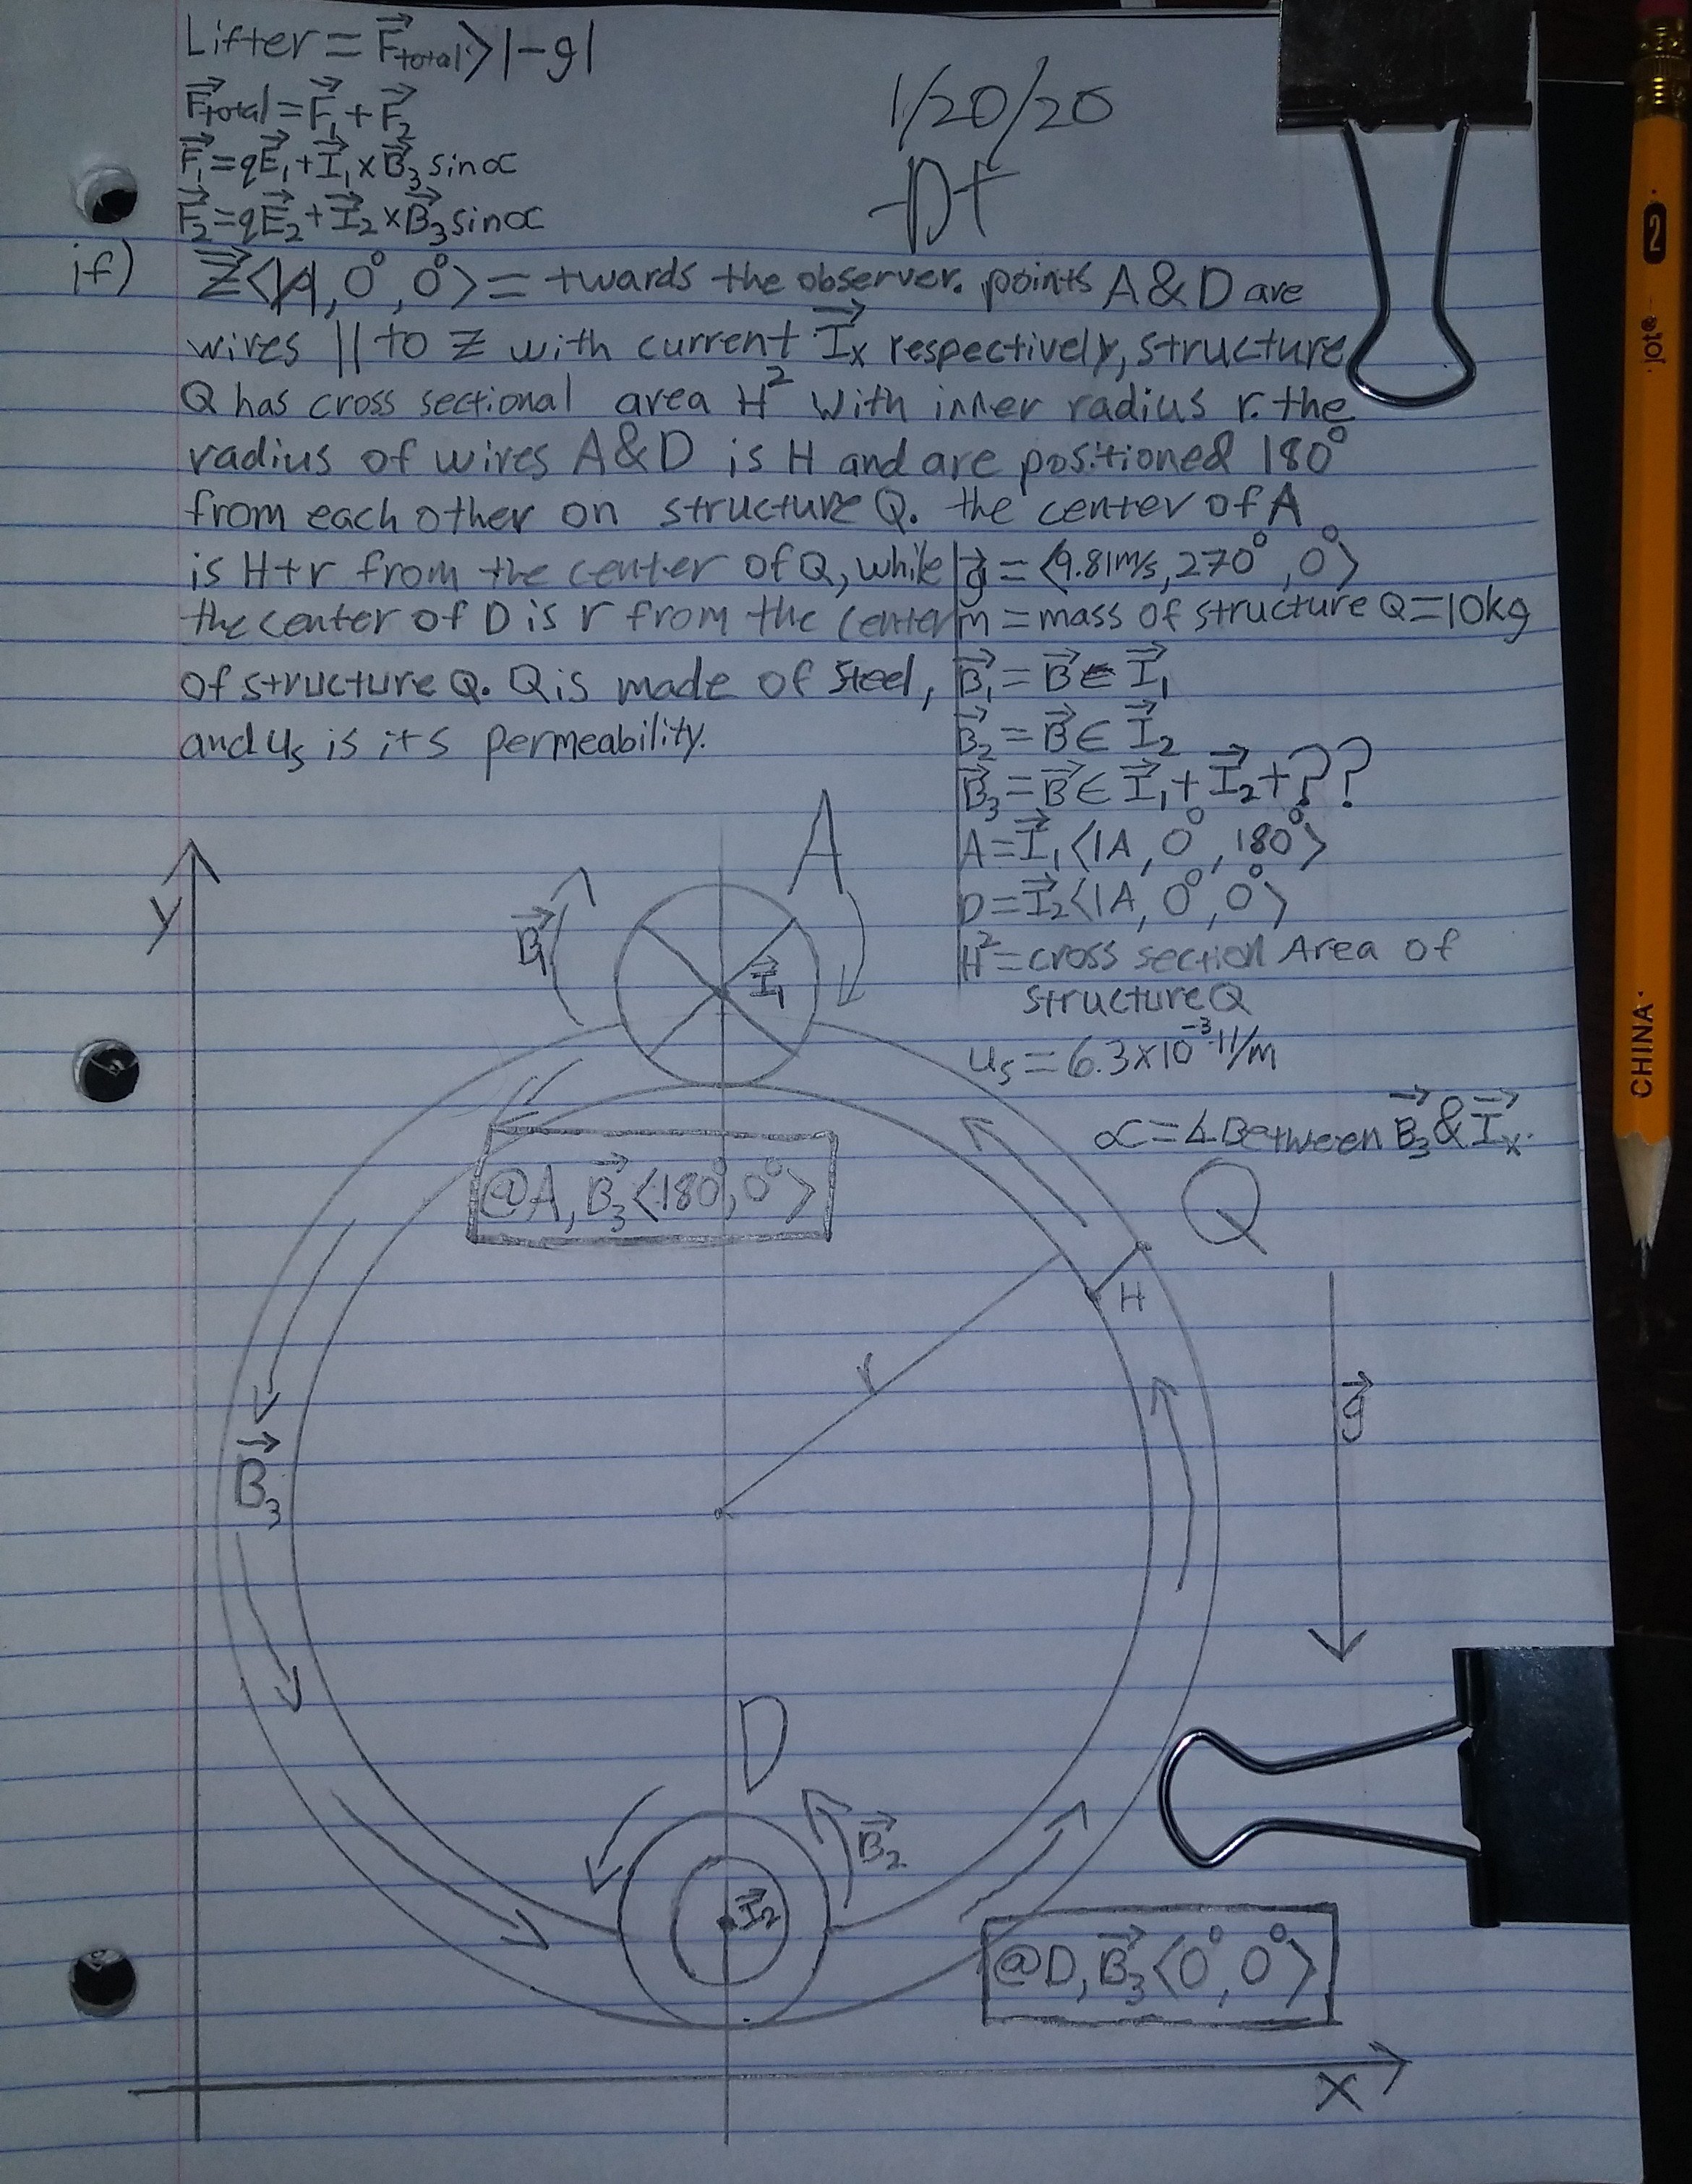 Lifter = F⃗total > |-g|
F⃗total = F⃗₁ + F⃗₂
F⃗₁ = qE⃗₁ + I⃗₁ × B⃗₃ sin∝
F⃗₂ = qE⃗₂ + I⃗₂ × B⃗₃ sin∝
1/20/20
-Dt
if) Z⃗<|A|, 0°, 0°> = twards the observer. points A & D are
wires || to Z with current I⃗x respectively, structure
Q has cross sectional area H² with inner radius r. the
radius of wires A&D is H and are positioned 180°
from each other on structure Q. the center of A
is H+r from the center of Q, while
the center of D is r from the center
of structure Q. Q is made of steel,
and us is its permeability.
g⃗ = <9.81m/s, 270°, 0°>
m = mass of structure Q = 10kg
B⃗₁ = B⃗ ∈ I⃗₁
B⃗₂ = B⃗ ∈ I⃗₂
B⃗₃ = B⃗ ∈ I⃗₁ + I⃗₂ + ??
A = I⃗₁ <1A, 0°, 180°>
D = I⃗₂ <1A, 0°, 0°>
H² = cross section Area of
structure Q
us = 6.3×10⁻³ H/m
∝ = ∡ Between B⃗₃ & I⃗x.
y
A
B⃗₁
I⃗₁
@A, B⃗₃ <180°, 0°>
Q
H
r
g⃗
B⃗₃
D
B⃗₂
I⃗₂
@D, B⃗₃ <0°, 0°>
x
2
jot®
CHINA